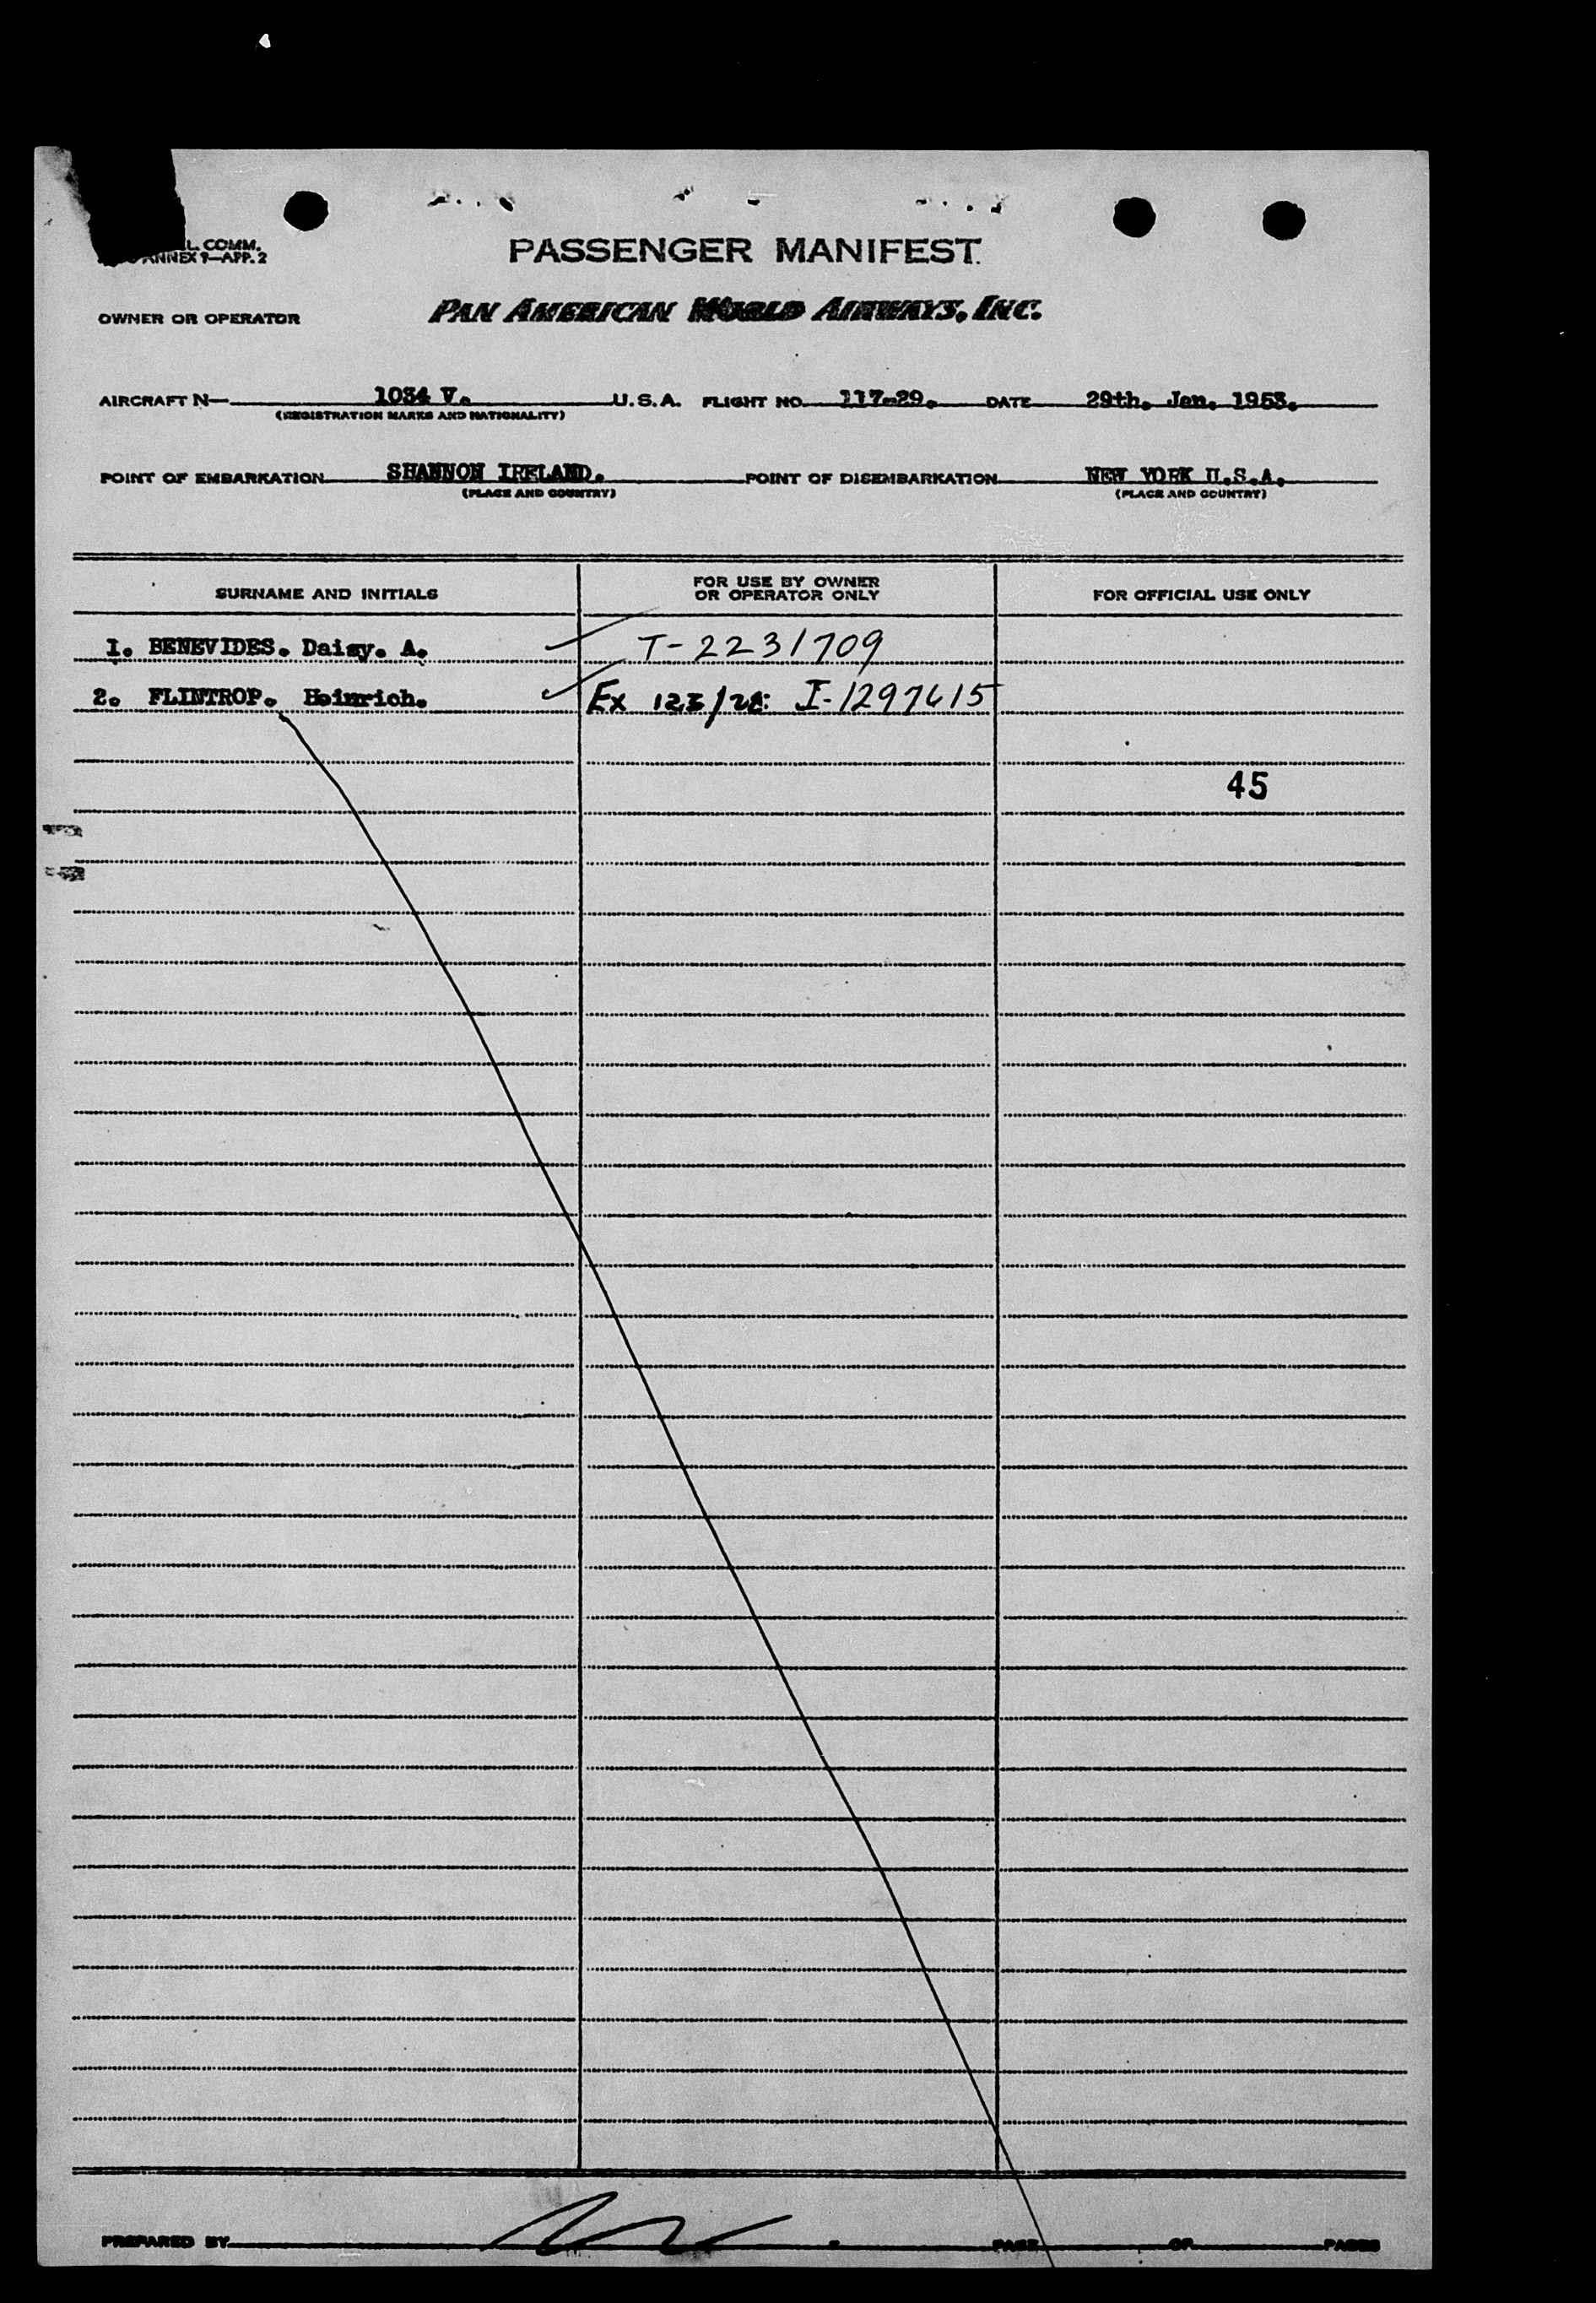 L. COMM.
ANNEX 9—APP. 2
PASSENGER MANIFEST
OWNER OR OPERATOR PAN AMERICAN WORLD AIRWAYS, INC.
AIRCRAFT N— 1034 V. U.S.A. FLIGHT NO. 117-29. DATE 29th. Jan. 1953.
(REGISTRATION MARKS AND NATIONALITY)
POINT OF EMBARKATION SHANNON IRELAND. POINT OF DISEMBARKATION NEW YORK U.S.A.
(PLACE AND COUNTRY) (PLACE AND COUNTRY)
SURNAME AND INITIALS FOR USE BY OWNER OR OPERATOR ONLY FOR OFFICIAL USE ONLY
1. BENEVIDES. Daisy. A. T-2231709
2. FLINTROP. Heinrich. Ex I-1297615
45
PREPARED BY PAGE OF PAGES